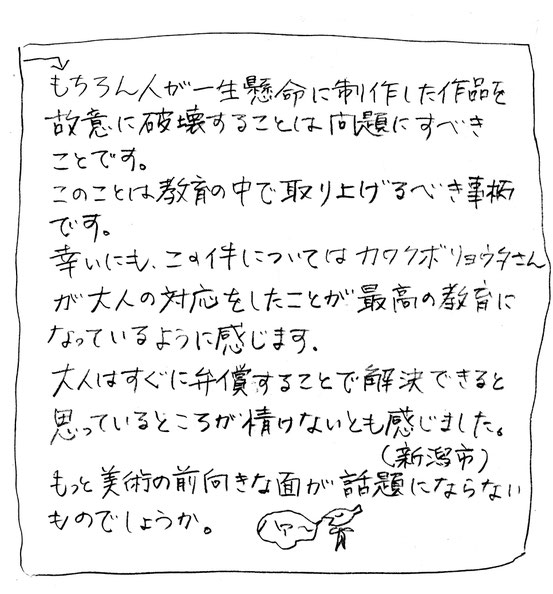 もちろん人が一生懸命に制作した作品を
故意に破壊することは問題にすべき
ことです。
このことは教育の中で取り上げるべき事柄
です。
幸いにも、この件についてはカワクボリョウタさん
が大人の対応をしたことが最高の教育に
なっているように感じます。
大人はすぐに弁償することで解決できると
思っているところが情けないとも感じました。
(新潟市)
もっと美術の前向きな面が話題にならない
ものでしょうか。
ハァ〜